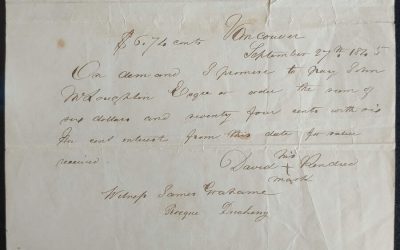 $6.74 cents Vancouver
September 27th 1845
On demand I promise to pay John
McLoughlin Esqre or order the sum of
six dollars and seventy four cents with six
per cent interest from this date for value
received
David his X mark
Witness James Grahame
Rocque Ducheny